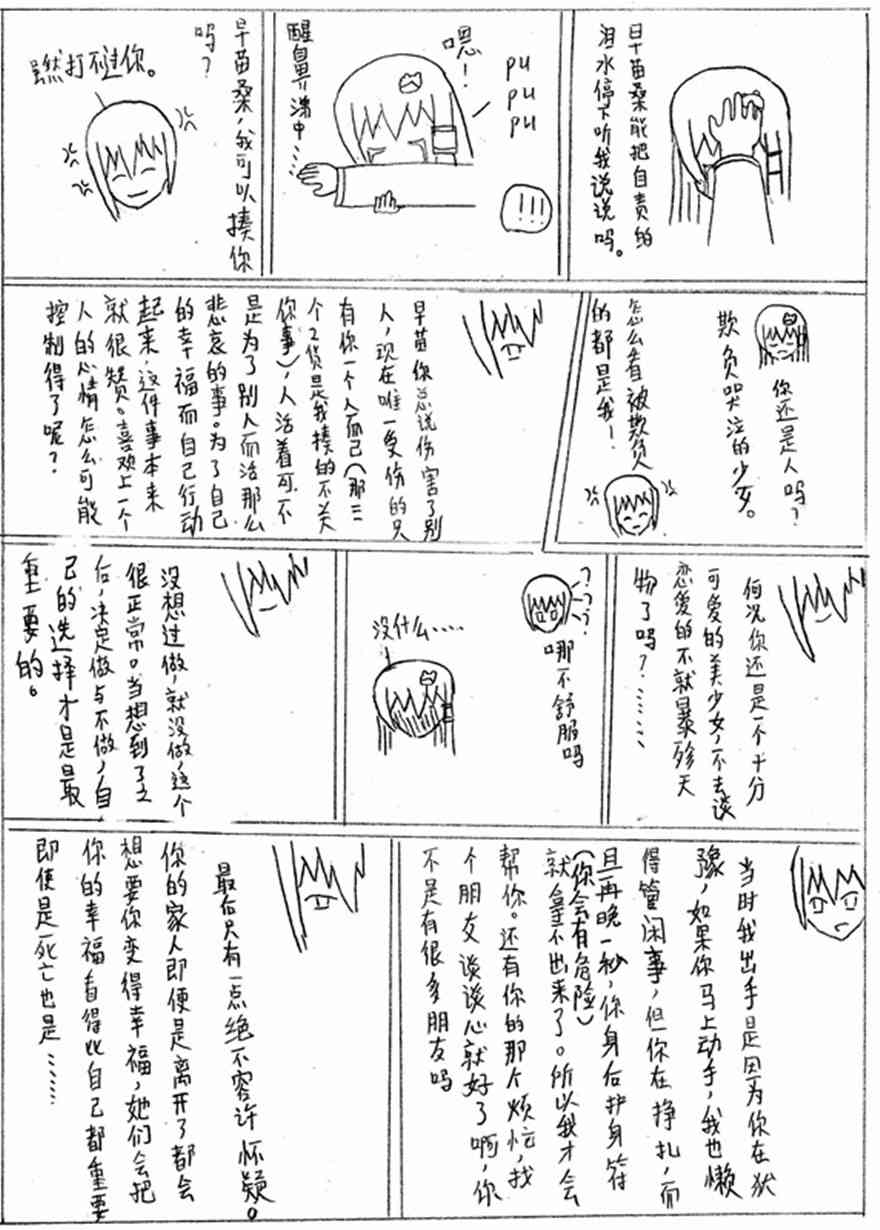 早苗桑能把自责的
泪水停下听我说说吗。
嗯！
pu
pu
pu
!!!
醒鼻涕中……
早苗桑，我可以揍你
吗？
虽然打不过你。
你还是人吗？
欺负哭泣的少女。
怎么看被欺负
的都是我！
早苗你总说伤害了别
人，现在唯一受伤的只
有你一个人而已（那三
个2货是我揍的不关
你事），人活着可不
是为了别人而活那么
悲哀的事。为了自己
的幸福而自己行动
起来，这件事本来
就很赞。喜欢上一个
人的心情怎么可能
控制得了呢？
何况你还是一个十分
可爱的美少女，不去谈
恋爱的不就暴殄天
物了吗？………
???
哪不舒服吗
没什么……
没想过做，就没做，这个
很正常。当想到了之
后，决定做与不做，自
己的选择才是最
重要的。
当时我出手是因为你在犹
豫，如果你马上动手，我也懒
得管闲事，但你在挣扎，而
且再晚一秒，你身后护身符
（你会有危险）
就拿不出来了。所以我才会
帮你。还有你的那个烦恼，找
个朋友谈谈心就好了啊，你
不是有很多朋友吗
最后只有一点绝不容许怀疑。
你的家人即便是离开了都会
想要你变得幸福，她们会把
你的幸福看得比自己都重要
即使是死亡也是………